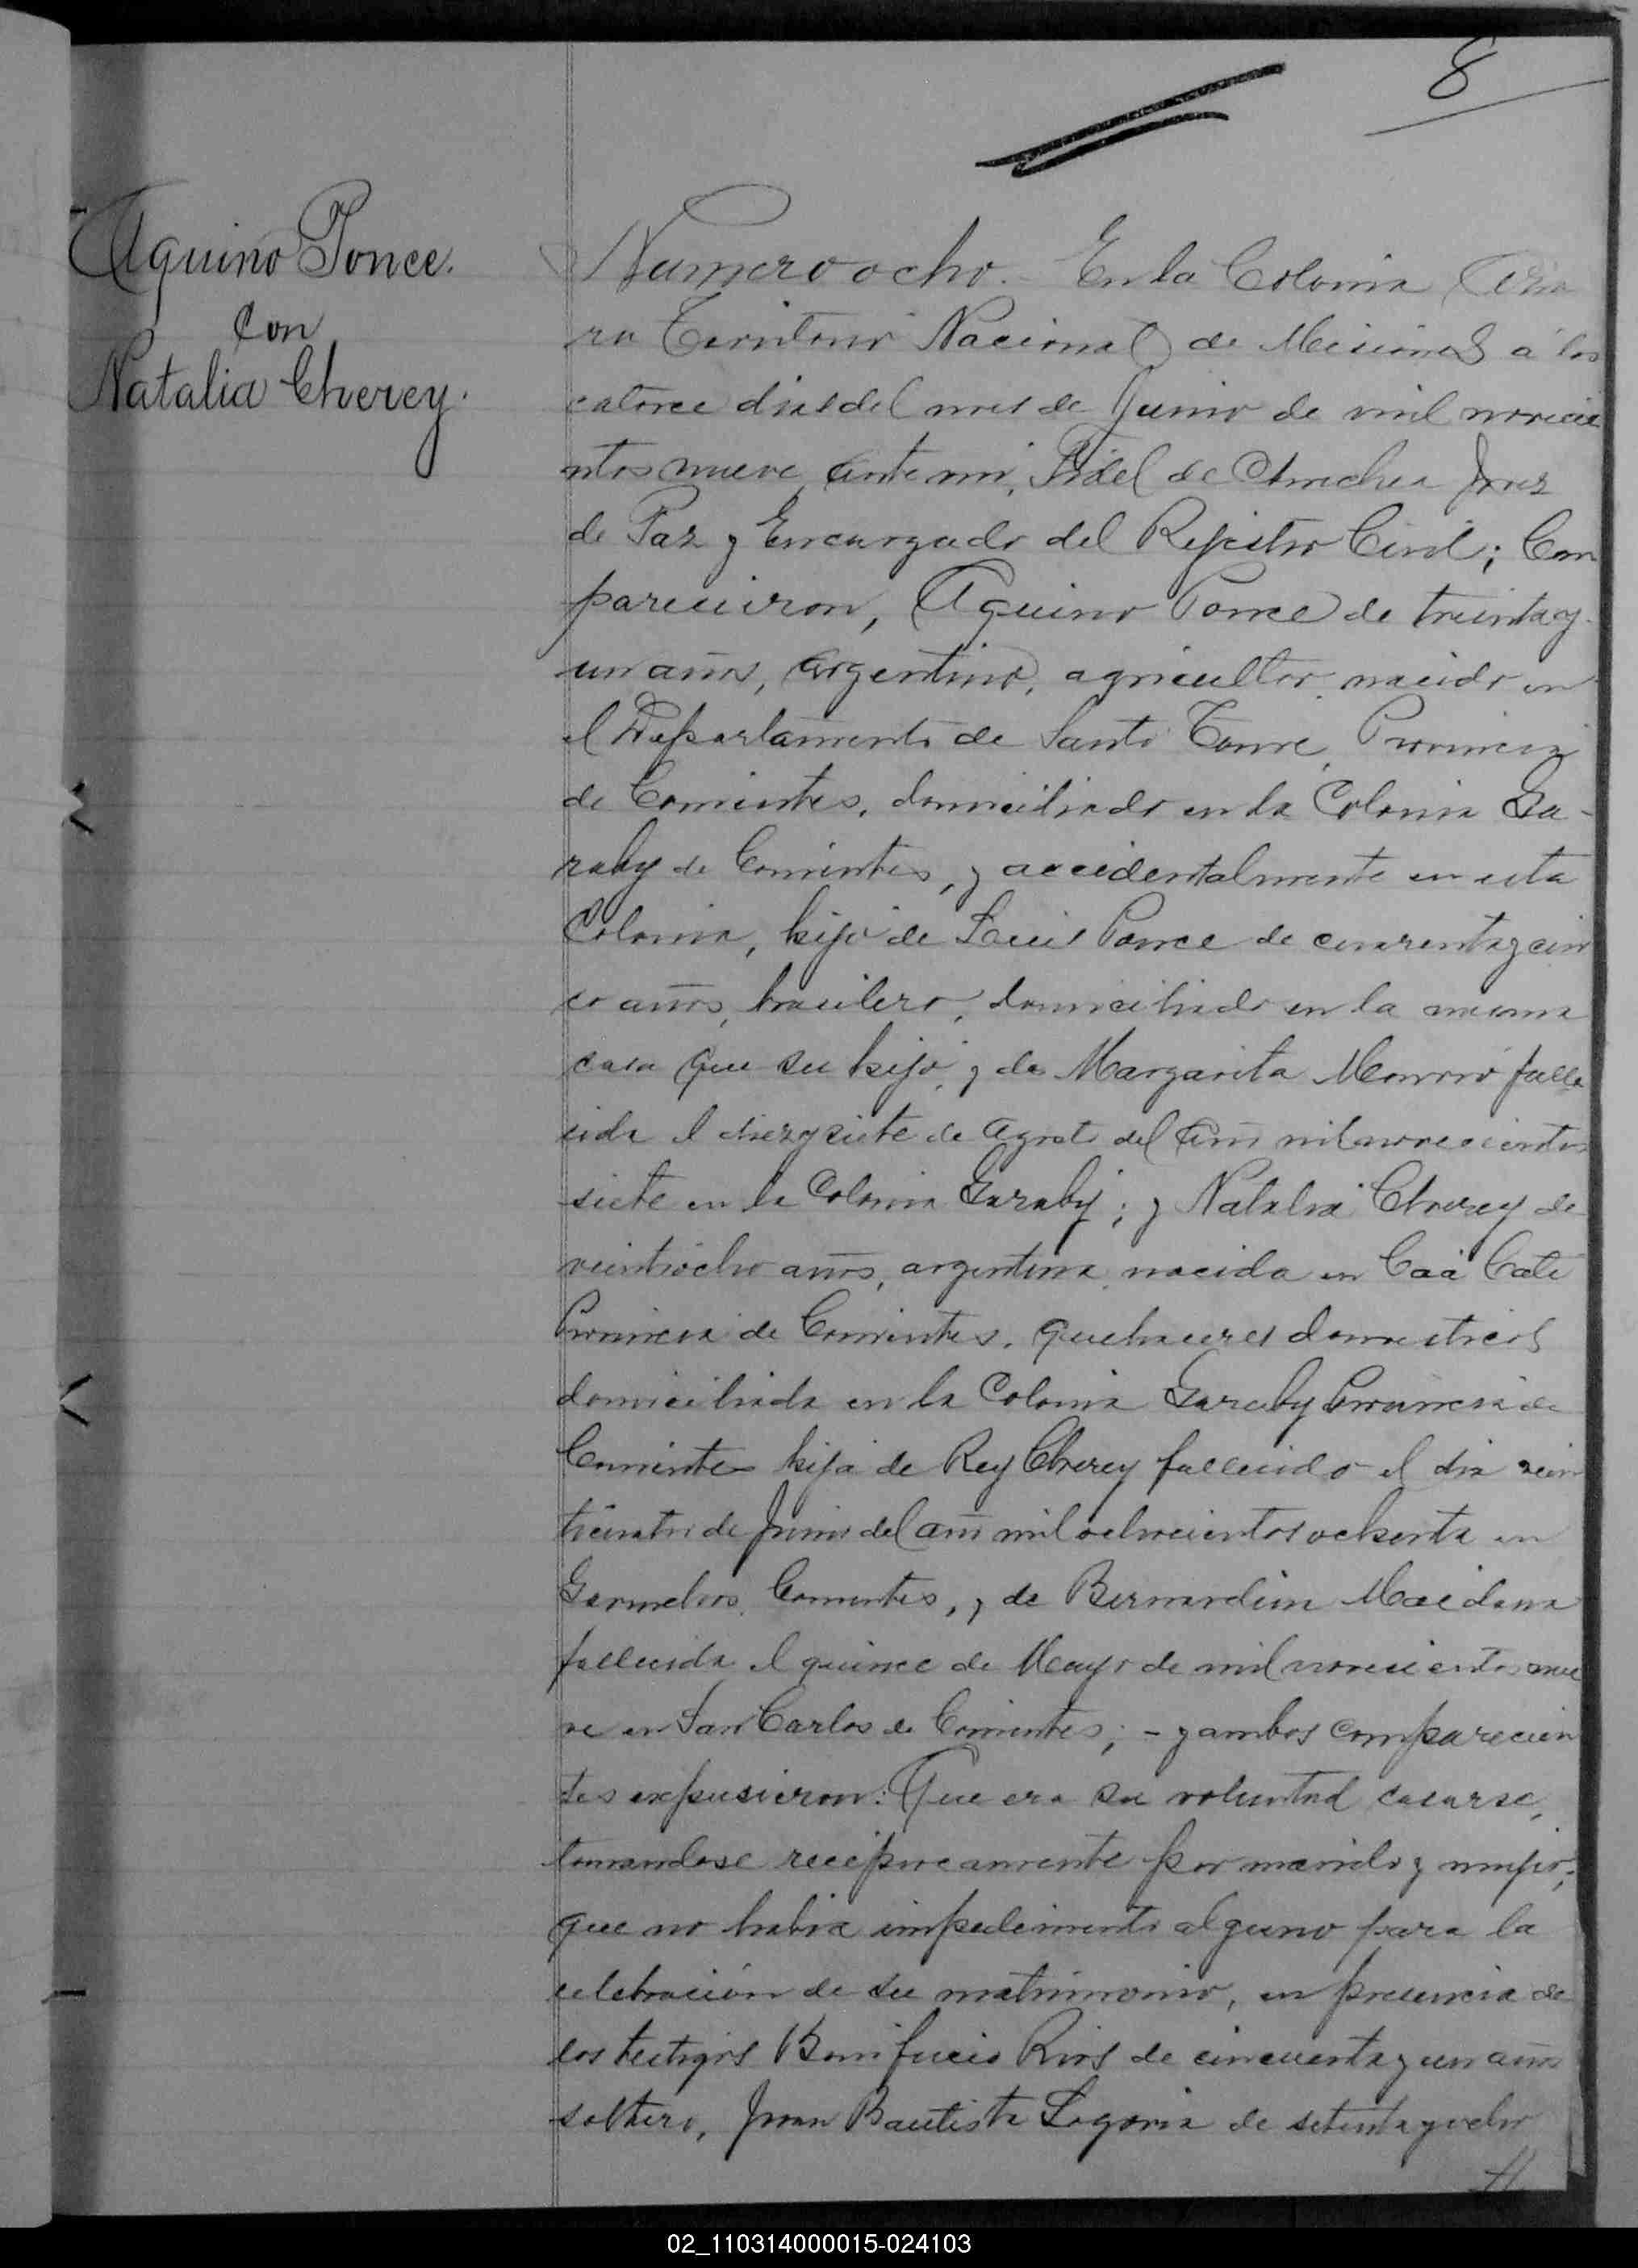 8
Aquino Ponce.
con
Natalia Cherey.
Numero ocho. En la Colonia Aza
ra Territorio Nacional de Misiones á los
catorce dias del mes de Junio de mil novecie
ntos nueve, ante mi, Fidel de Juez
de Paz y Encargado del Rejistro Civil; Com
parecieron, Aquino Ponce de treinta y
un años, argentino, agricultor, nacido en
el Departamento de Santo Tomé, Provincia
de Corrientes, domiciliado en la Colonia Ga-
raby de Corrientes, y accidentalmente en esta
Colonia, hijo de Luis Ponce de cuarenta y cin
co años, brasilero, domiciliado en la misma
casa que su hijo, y de Margarita falle
cida el diez y siete de Agosto del año mil novecientos
siete en la Colonia Garaby; y Natalia Cherey de
veintiocho años, argentina, nacida en Caá Cati
Provincia de Corrientes, quehaceres domesticos
domiciliada en la Colonia Garaby Provincia de
Corrientes hija de Rey Cherey fallecido el dia vein
ticuatro de Junio del año mil ochocientos ochenta en
Garruchos, Corrientes, y de Bernardina Maidana
fallecida el quince de Mayo de mil novecientos nue
ve en San Carlos de Corrientes; - y ambos comparecien
tes expusieron: Que era su voluntad casarse,
tomandose reciprocamente por marido y mujer;
que no habia impedimento alguno para la
celebración de su matrimonio, en presencia de
los testigos Bonifacio Rios de cincuenta y un años
soltero, Juan Bautista Legoria de setenta y ocho
02_110314000015-024103